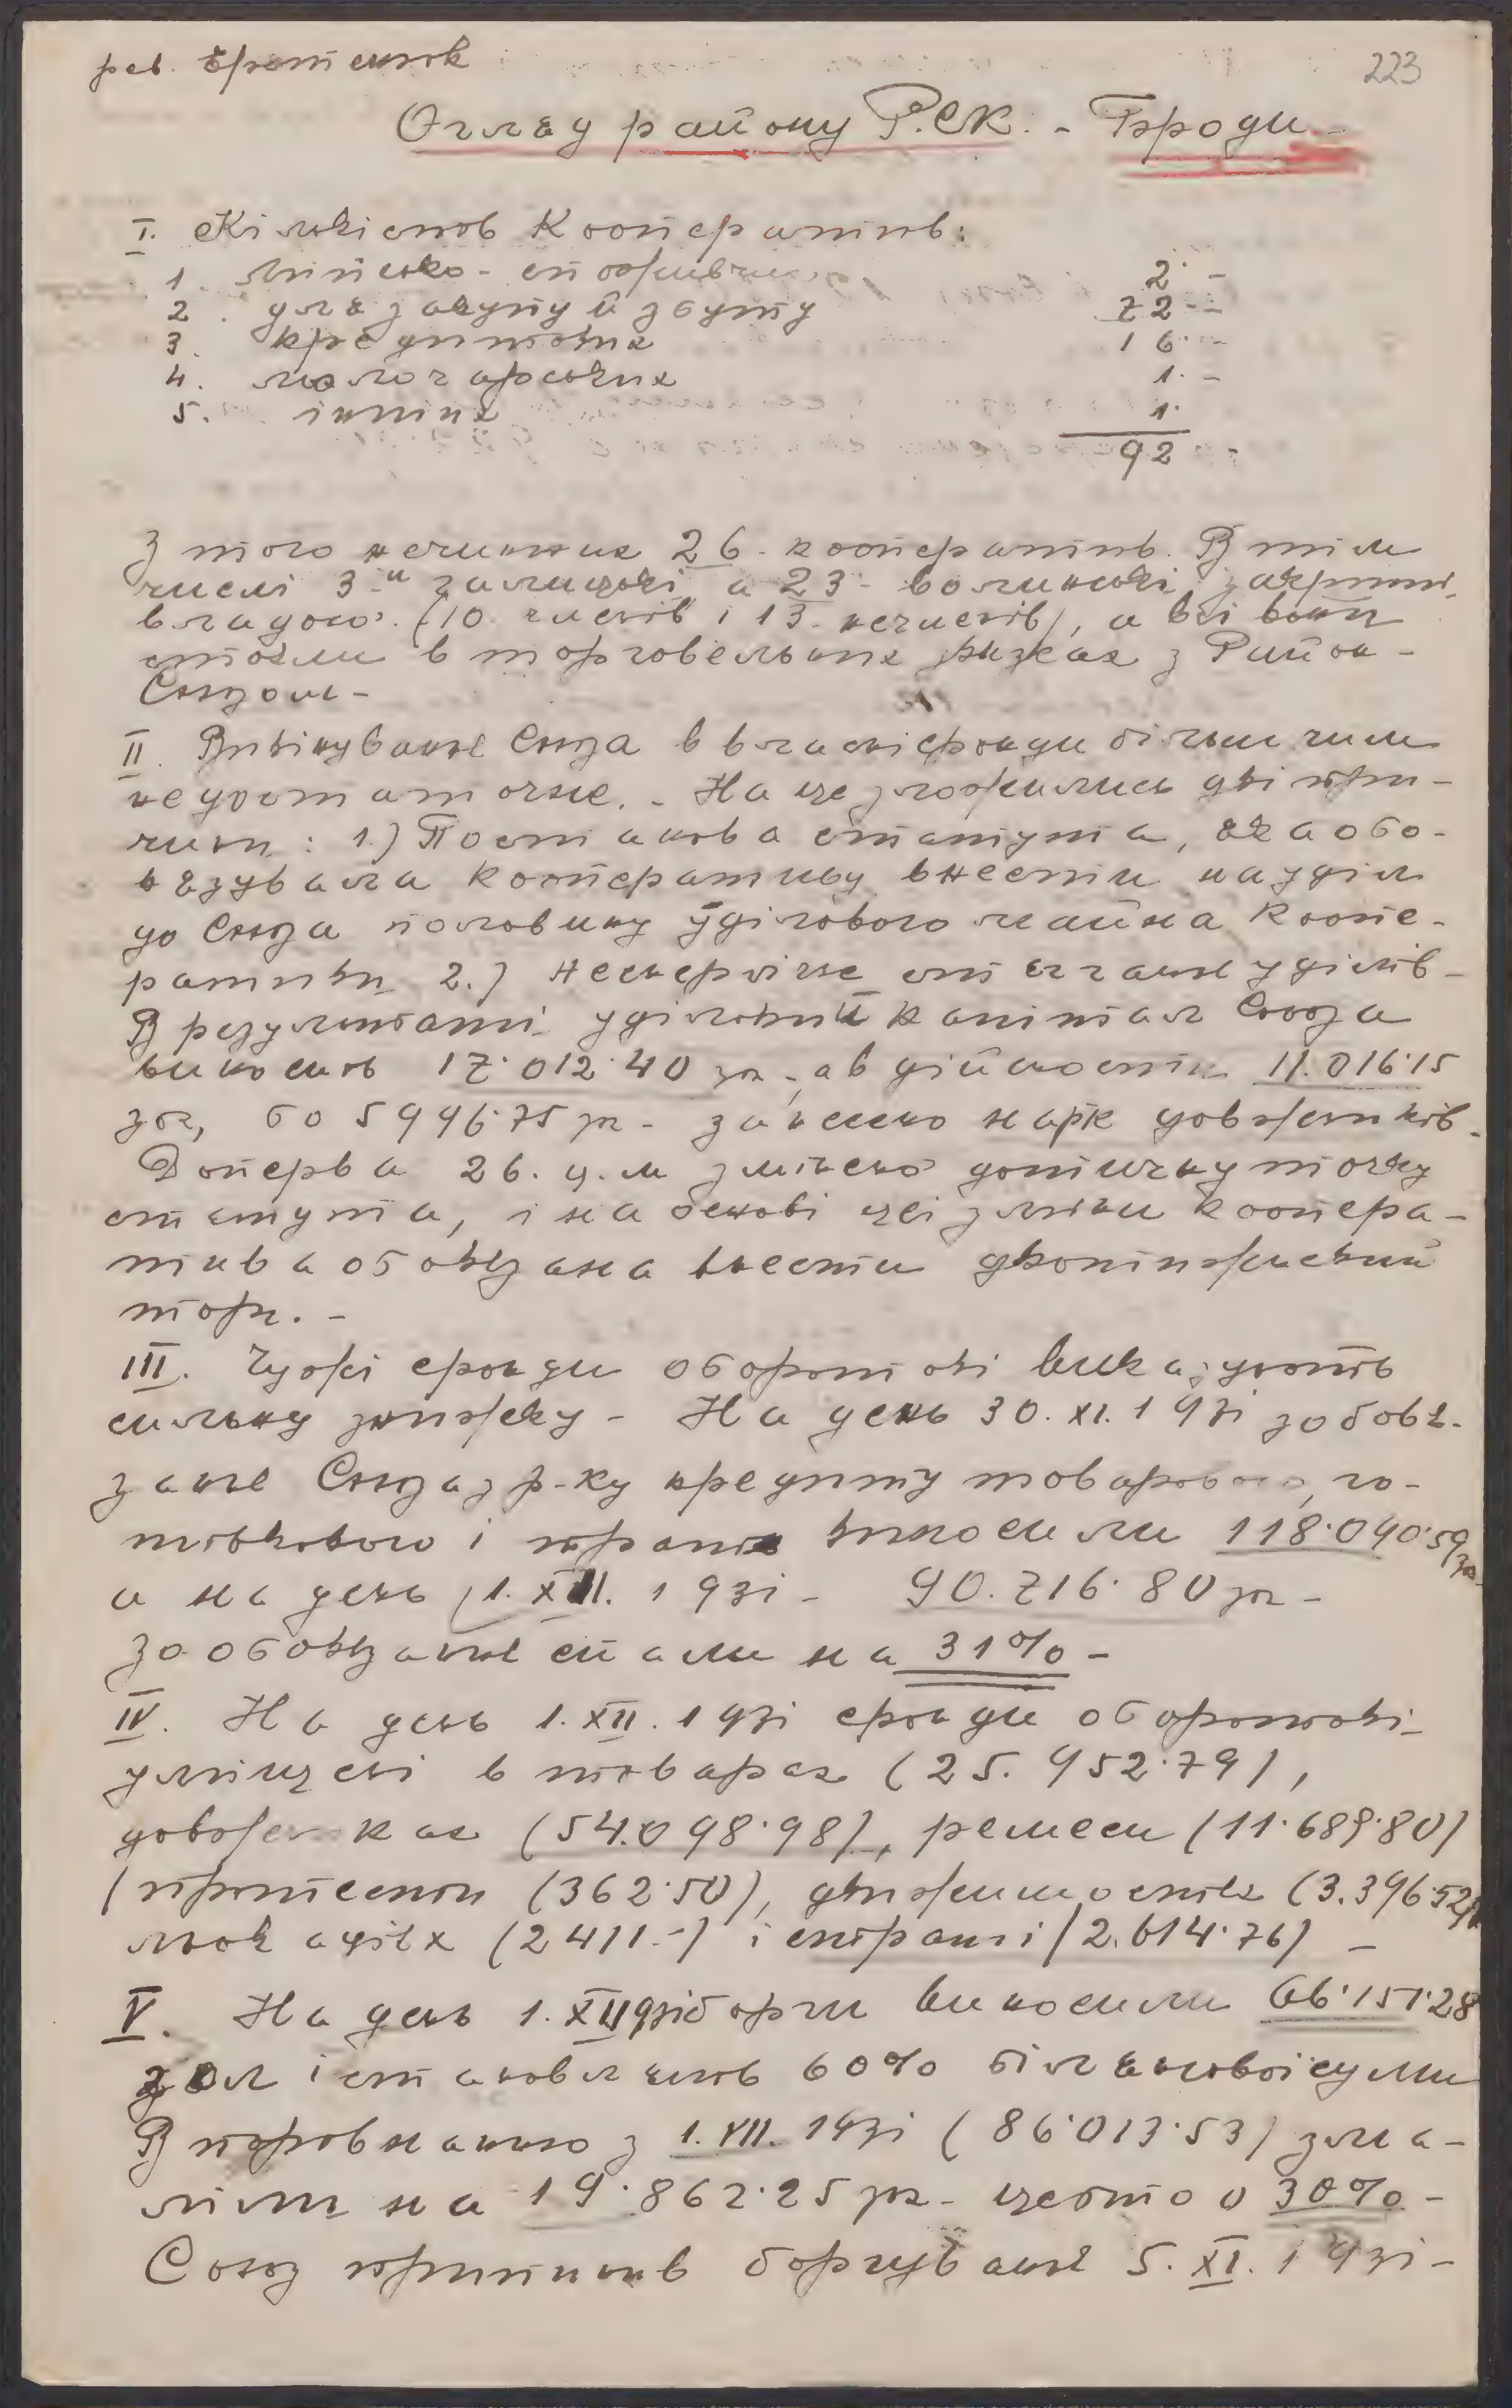 рев. 223
Огляд району Р.С.К. - Броди
I. Кількість Кооператив:
1. мійсько-споживчих 2 -
2. для закупу й збуту 72 -
3. кредитових 16 -
4. молочарських 1. -
5. інших 1.
92 -
З того нечинних 26 - кооператив. В тім
числі 3 - галицькі, а 23 - волинські, закриті
владою. (10. членів і 13. нечленів), а всі вони
стояли в торговельних звязках з Район -
Союзом -
II. Вивінуванє Союза в власні фонди більш чим
недостаточне. - На це зложились дві при-
чини: 1.) Постанова статута, яка обо-
вязувала Кооперативу внести на уділ
до Союза половину уділового майна Коопе-
ративи 2.) Неенергічне стягганє уділів -
В результаті уділовий капітал Союза
виносив 17.012.40 зл -, а в дійсности 11.016.15
зол, бо 5996.75 зл - занесено на рк довжників -
Доперва 26. ц. м змінено дотичну точку
статута, і на основі цеї зміни коопера-
тива обовязана внести двотижневий
торг. -
III. Чужі фонди оборотові виказують
сильну знижку - На день 30. XI. 193i зобовя-
занє Союза з р-ку кредиту товарового, го-
тівкового і виносили 118.040.59 зл
а на день 1. XII. 193i - 90.716.80 зл -
зообовязанє спали на 31% -
IV. На день 1. XII. 193i фонди оборотові
уміщені в товарах (25.952.79),
довжниках (54.098.98), ремеси (11.689.80)
протести (362.50), движимостях (3.396.52)
льокаціях (2411.-) і страті (2.614.76) -
V. На день 1. XII 93i борги виносили 66.151.28
зол і становлять 60% білянсової суми
В порівнанню з 1. VII. 193i (86.013.53) зма-
ліли на 19.862.25 зл - цебто о 30% -
Союз припинив боргуванє 5. XI. 193i -